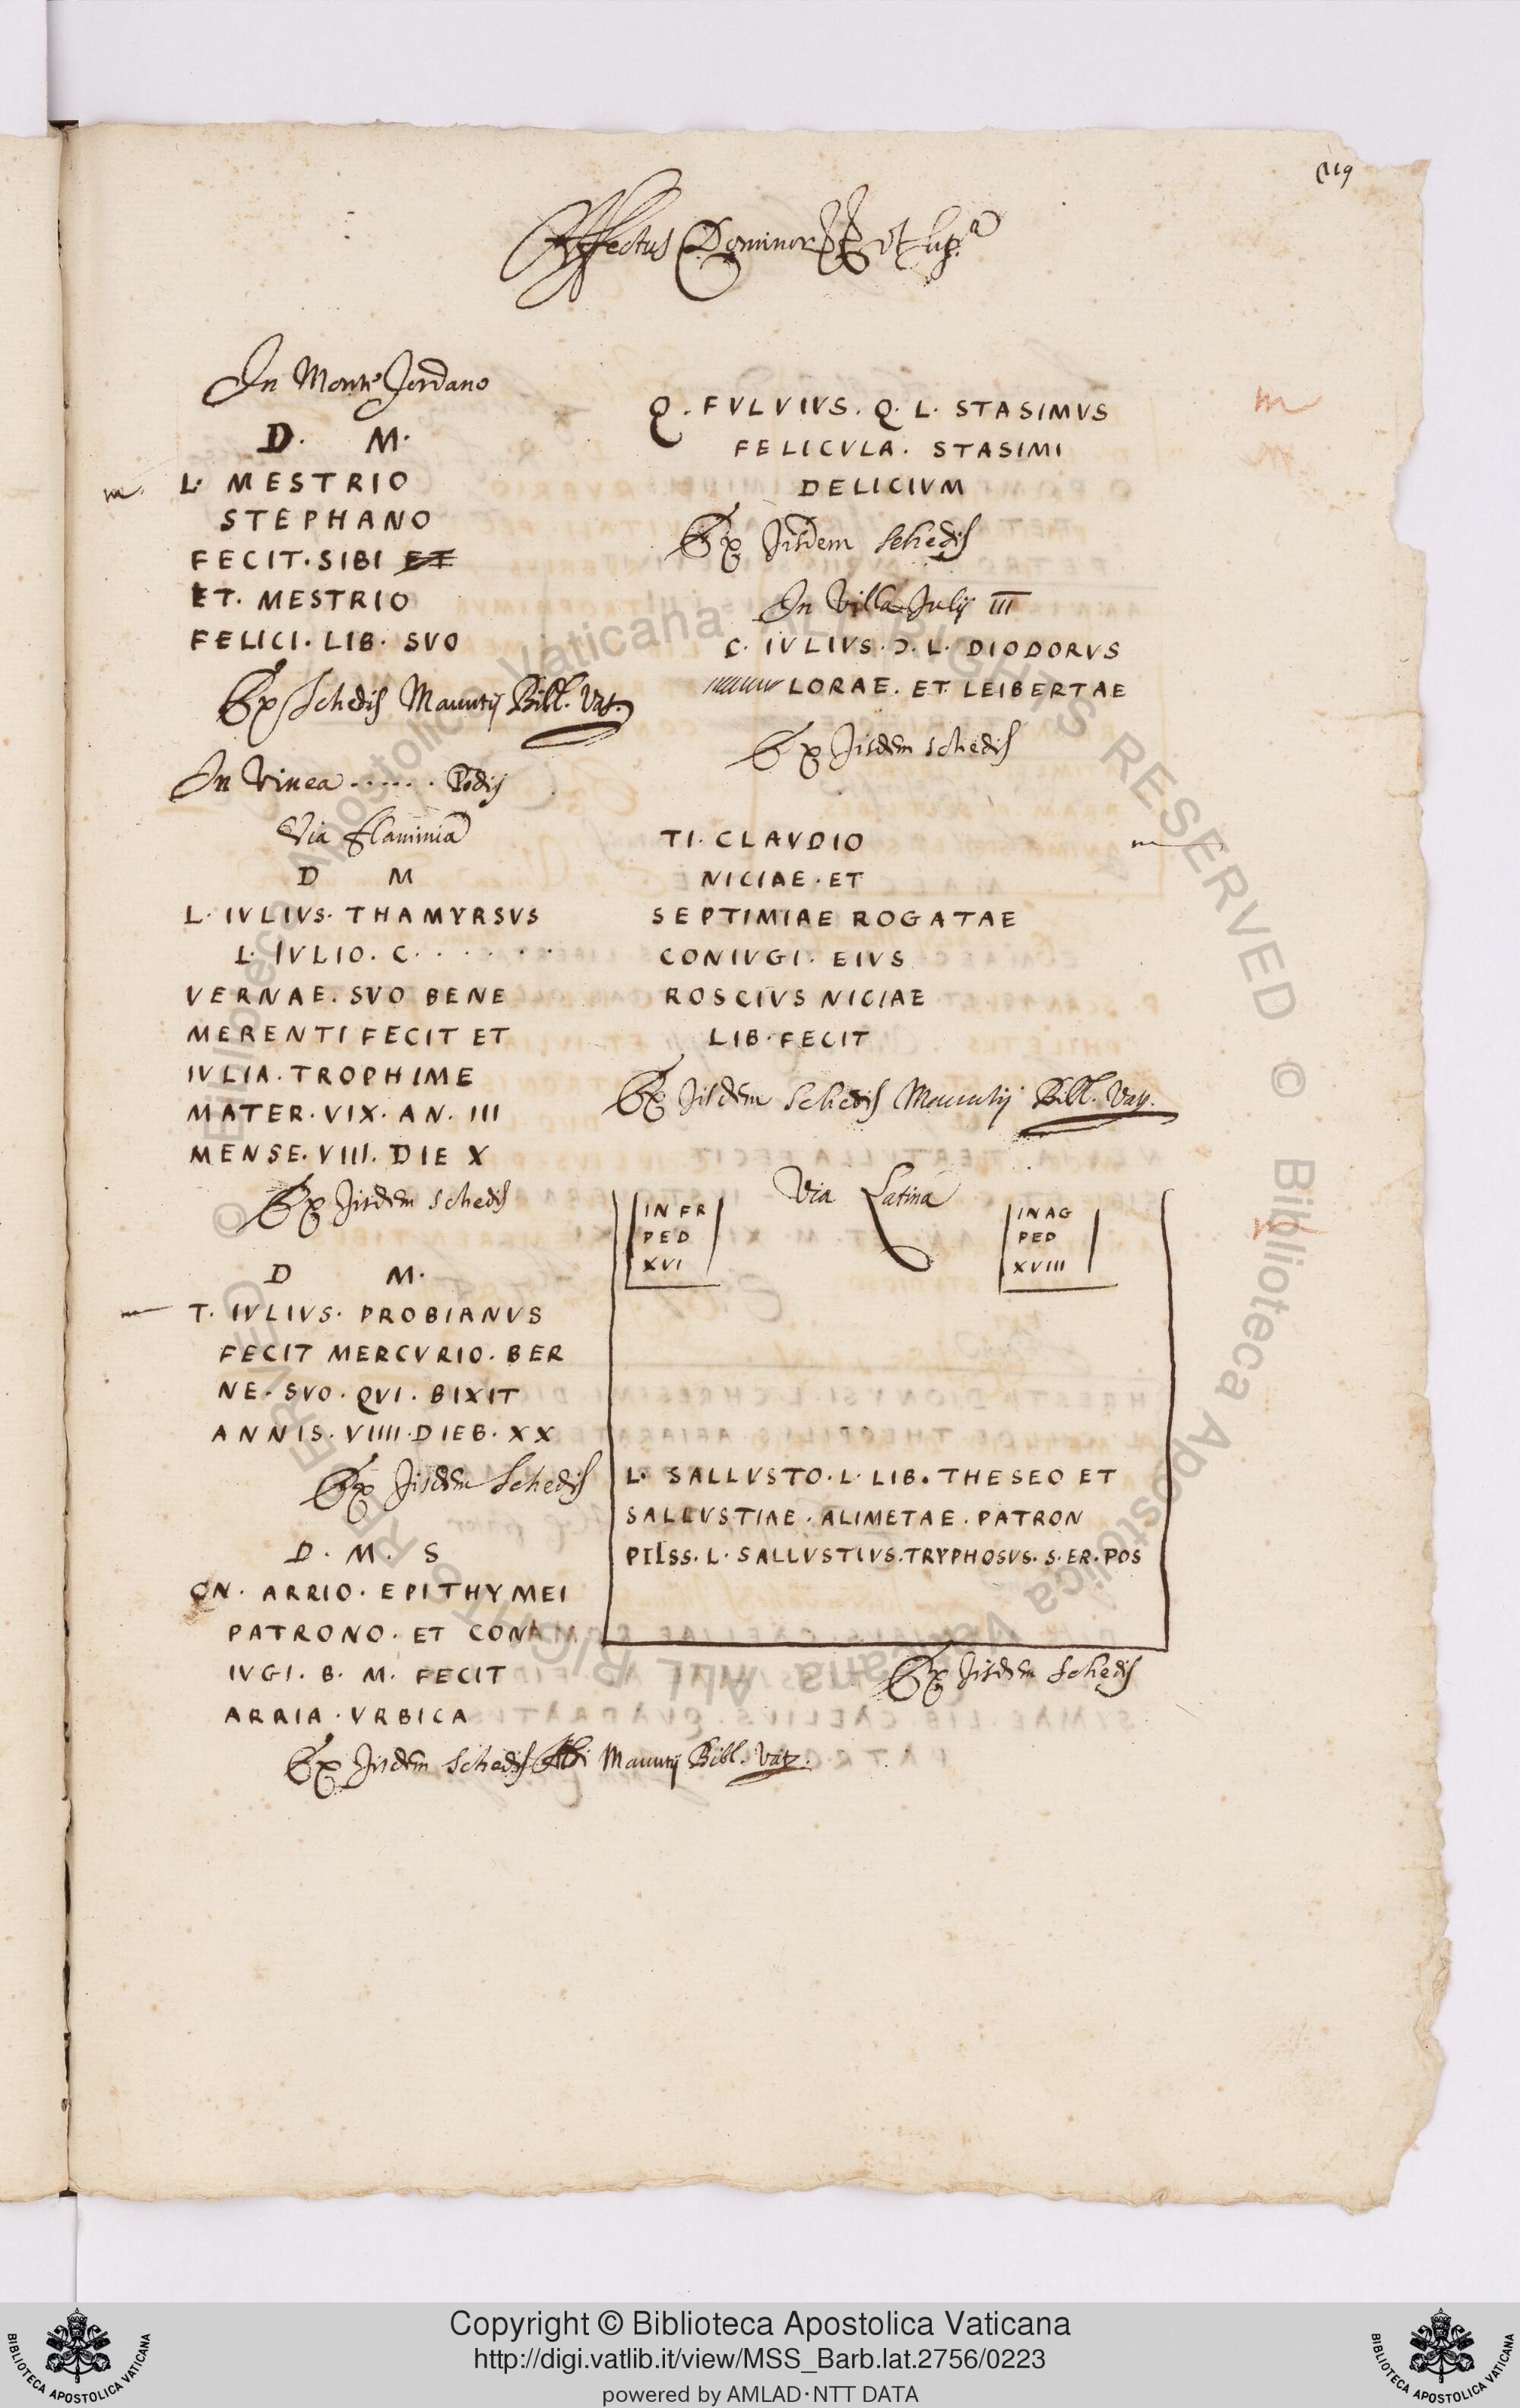 119
Affectus Dominor
In Monte Jordano
D. M.
L. MESTRIO
STEPHANO
FECIT. SIBI ET
ET. MESTRIO
FELICI. LIB. SVO
Ex Schedis Manutij Bibl. Vat.
In Vinea . . . . . .
Via Flaminia
D M
L. IVLIVS. THAMYRSVS
L. IVLIO. C. . . . . .
VERNAE. SVO BENE
MERENTI FECIT ET
IVLIA. TROPHIME
MATER. VIX. AN. III
MENSE. VIII. DIE X
Ex Jisdem schedis
D M.
T. IVLIVS. PROBIANVS
FECIT MERCVRIO. BER
NE. SVO. QVI. BIXIT
ANNIS. VIIII. DIEB. XX
Ex Jisdem Schedis
D. M. S
CN. ARRIO. EPITHYMEI
PATRONO. ET CON
IVGI. B. M. FECIT
ARRIA. VRBICA
Ex Jisdem Schedis Manutij Bibl. Vat.
Q. FVLVIVS. Q. L. STASIMVS
FELICVLA. STASIMI
DELICIVM
Ex Jisdem Schedis
In Villa Julij III
C. IVLIVS. Ɔ. L. DIODORVS
LORAE. ET. LEIBERTAE
Ex Jisdem schedis
TI. CLAVDIO
NICIAE. ET
SEPTIMIAE ROGATAE
CONIVGI. EIVS
ROSCIVS NICIAE
LIB. FECIT
Ex Jisdem Schedis Manutij Bibl. Vat.
Via Latina
IN FR
PED
XVI
IN AG
PED
XVIII
L. SALLVSTO. L. LIB. THESEO ET
SALLVSTIAE. ALIMETAE. PATRON
PIISS. L. SALLVSTIVS. TRYPHOSVS. S. ER. POS
Ex Jisdem Schedis
© Biblioteca Apostolica Vaticana ALL RIGHTS RESERVED © Biblioteca Apostolica Vaticana ALL RIGHTS RESERVED
Copyright © Biblioteca Apostolica Vaticana
http://digi.vatlib.it/view/MSS_Barb.lat.2756/0223
powered by AMLAD·NTT DATA
BIBLIOTECA APOSTOLICA VATICANA
BIBLIOTECA APOSTOLICA VATICANA